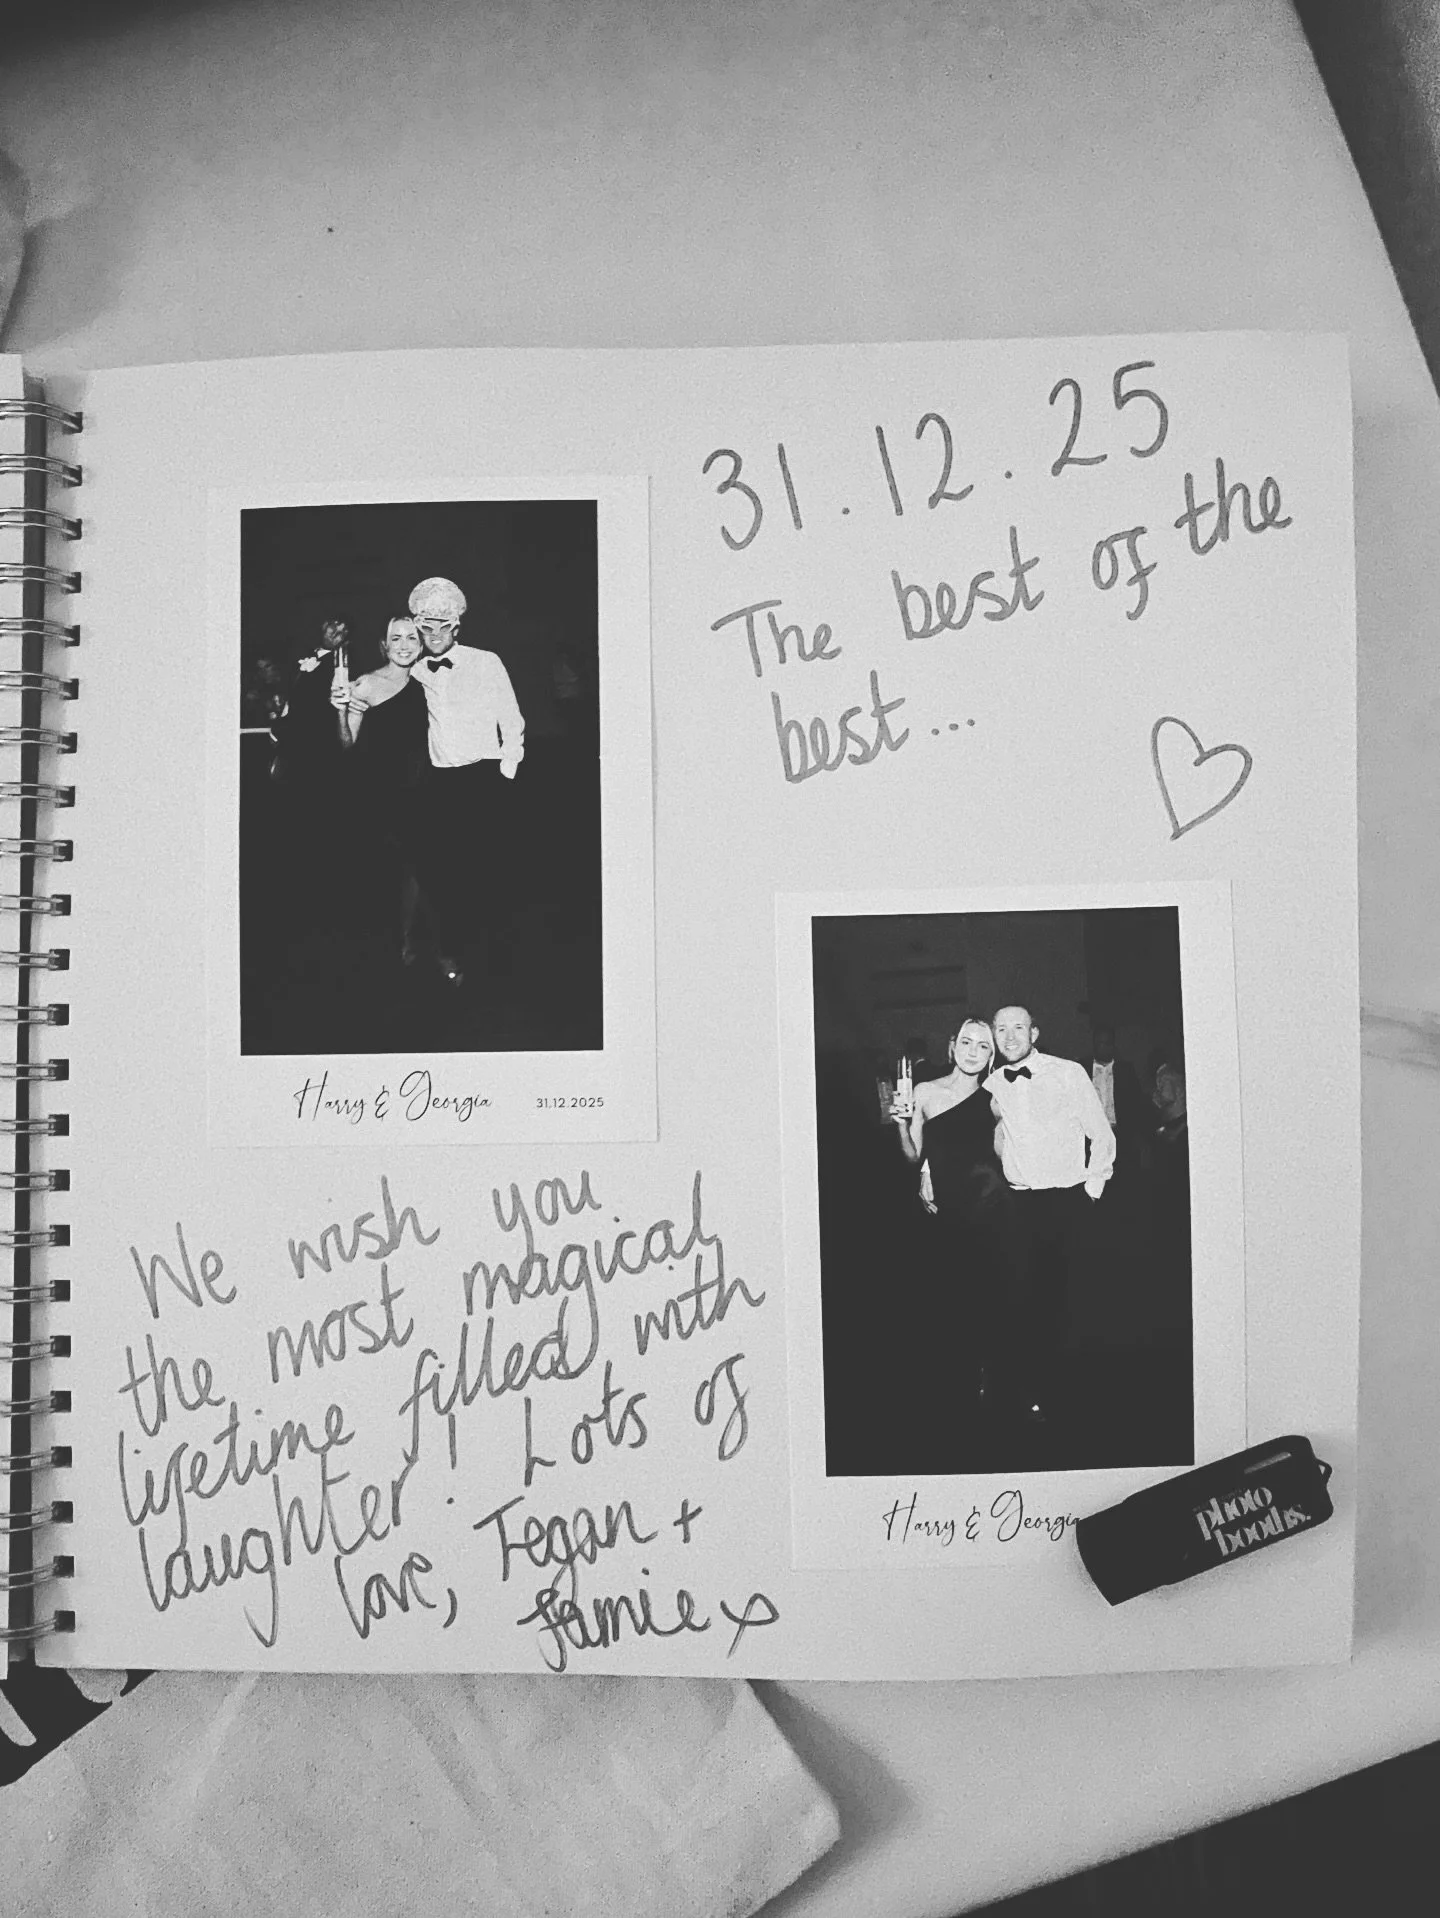 31.12.25
The best of the
best...
Harry & Georgia 31.12.2025
We wish you
the most magical
lifetime filled with
laughter! Lots of
love, Tegan +
Jamie x
Harry & Georgia
photo
booths.